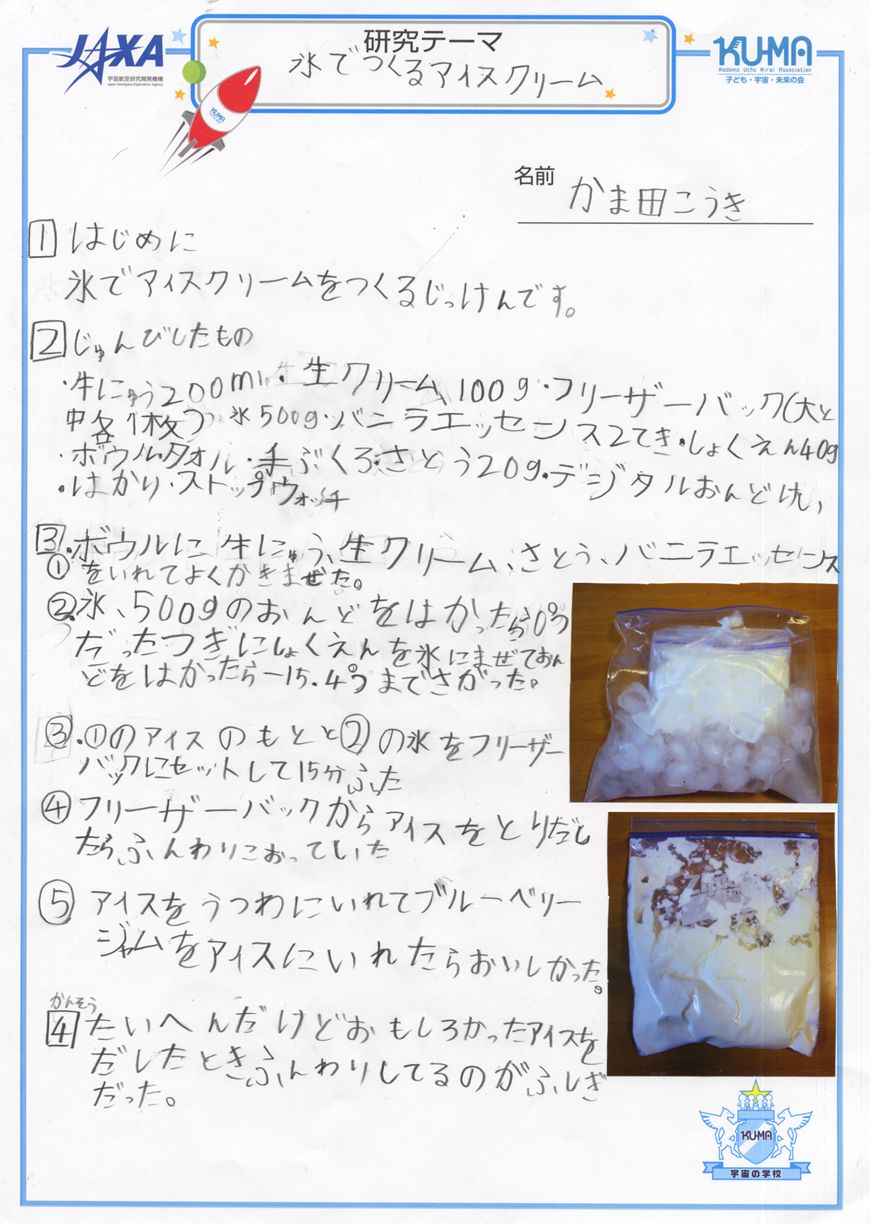 JAXA
宇宙航空研究開発機構
Japan Aerospace Exploration Agency
研究テーマ
氷でつくるアイスクリーム
KU-MA
Kodomo Uchu Mirai Association
子ども・宇宙・未来の会
KU-MA
名前 かま田こうき
1 はじめに
氷でアイスクリームをつくるじっけんです。
2 じゅんびしたもの
・牛にゅう200ml・生クリーム100g・フリーザーバック(大と
中各1枚)氷500g・バニラエッセンス2てき・しょくえん40g
・ボウル・タオル・手ぶくろ・さとう20g・デジタルおんどけい
・はかり・ストップウォッチ
3・ボウルに牛にゅう、生クリーム、さとう、バニラエッセンス
①をいれてよくかきまぜた。
②氷、500gのおんどをはかったら0℃
だったつぎにしょくえんを氷にまぜておん
どをはかったら-15.4℃までさがった。
③・①のアイスのもとと②の氷をフリーザー
バックにセットして15分ふった
④フリーザーバックからアイスをとりだし
たらふんわりこおっていた
⑤アイスをうつわにいれてブルーベリー
ジャムをアイスにいれたらおいしかった。
かんそう
4 たいへんだけどおもしろかったアイスを
だしたときふんわりしてるのがふしぎ
だった。
KU-MA
宇宙の学校